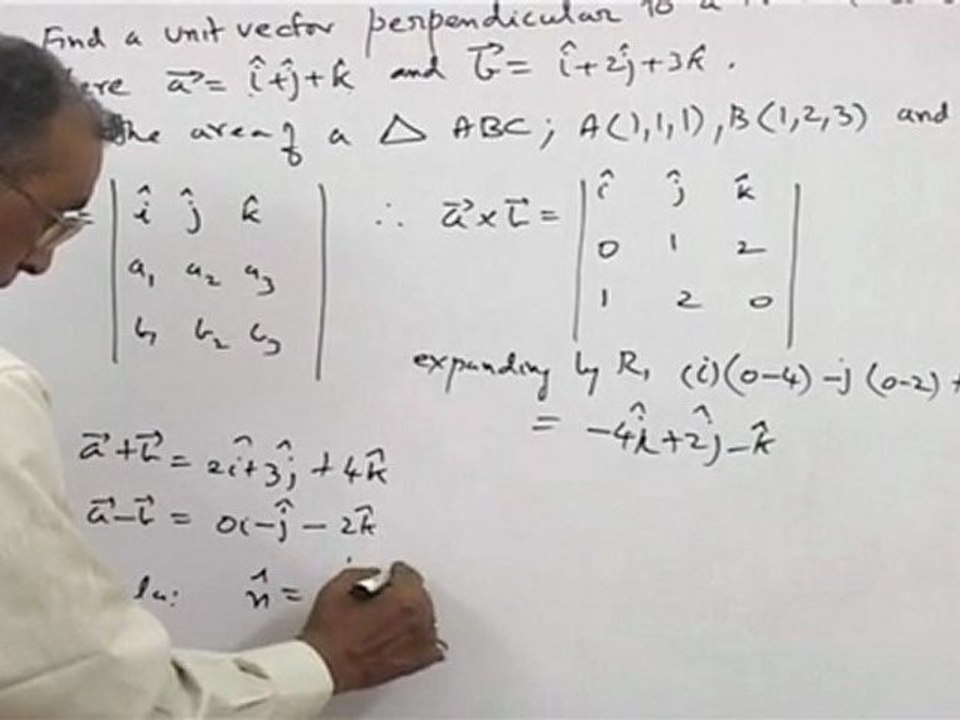 Find a unit vector perpendicular to a
where a⃗ = î+ĵ+k̂ and b⃗ = î+2ĵ+3k̂ .
the area of a △ ABC; A(1,1,1), B(1,2,3) and
= | î ĵ k̂ |
a₁ a₂ a₃
b₁ b₂ b₃
∴ a⃗ × b⃗ = | î ĵ k̂ |
0 1 2
1 2 0
expanding by R₁ (i)(0-4) -j (0-2) +
= -4î+2ĵ-k̂
a⃗+b⃗ = 2î+3ĵ+4k̂
a⃗-b⃗ = 0i-ĵ-2k̂
n̂ =